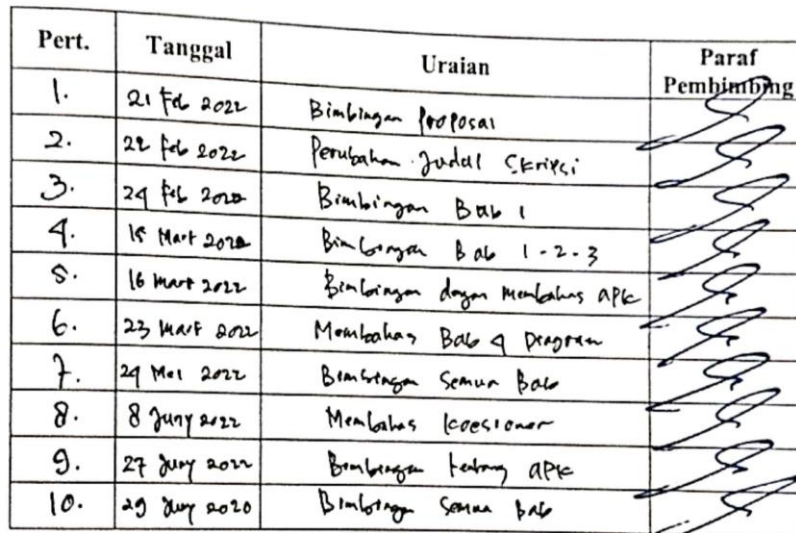 Pert. Tanggal Uraian Paraf Pembimbing
1. 21 Feb 2022 Bimbingan Proposal
2. 22 Feb 2022 Perubahan Judul Skripsi
3. 24 Feb 2022 Bimbingan Bab 1
4. 15 Mart 2022 Bimbingan Bab 1-2-3
5. 16 Mart 2022 Bimbingan dengan membahas apk
6. 23 Mart 2022 Membahas Bab 4 Diagram
7. 24 Mei 2022 Bimbingan Semua Bab
8. 8 Juny 2022 Membahas Koesioner
9. 27 Juny 2022 Bimbingan tentang apk
10. 29 Juny 2020 Bimbingan Semua Bab